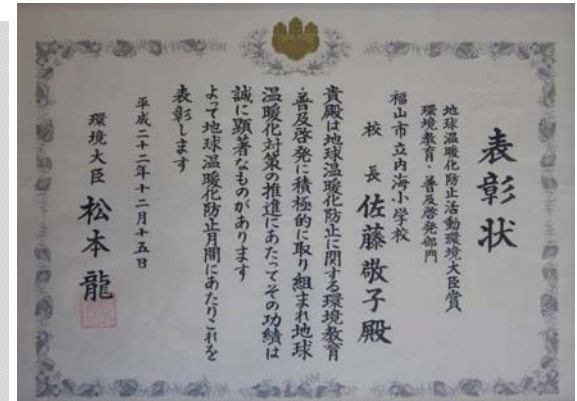 表彰状
地球温暖化防止活動環境大臣賞
環境教育・普及啓発部門
福山市立内海小学校
校長 佐藤敬子殿
貴殿は地球温暖化防止に関する環境教育
・普及啓発に積極的に取り組まれ地球
温暖化対策の推進にあたってその功績は
誠に顕著なものがあります
よって地球温暖化防止月間にあたりこれを
表彰します
平成二十二年十二月十五日
環境大臣 松本龍